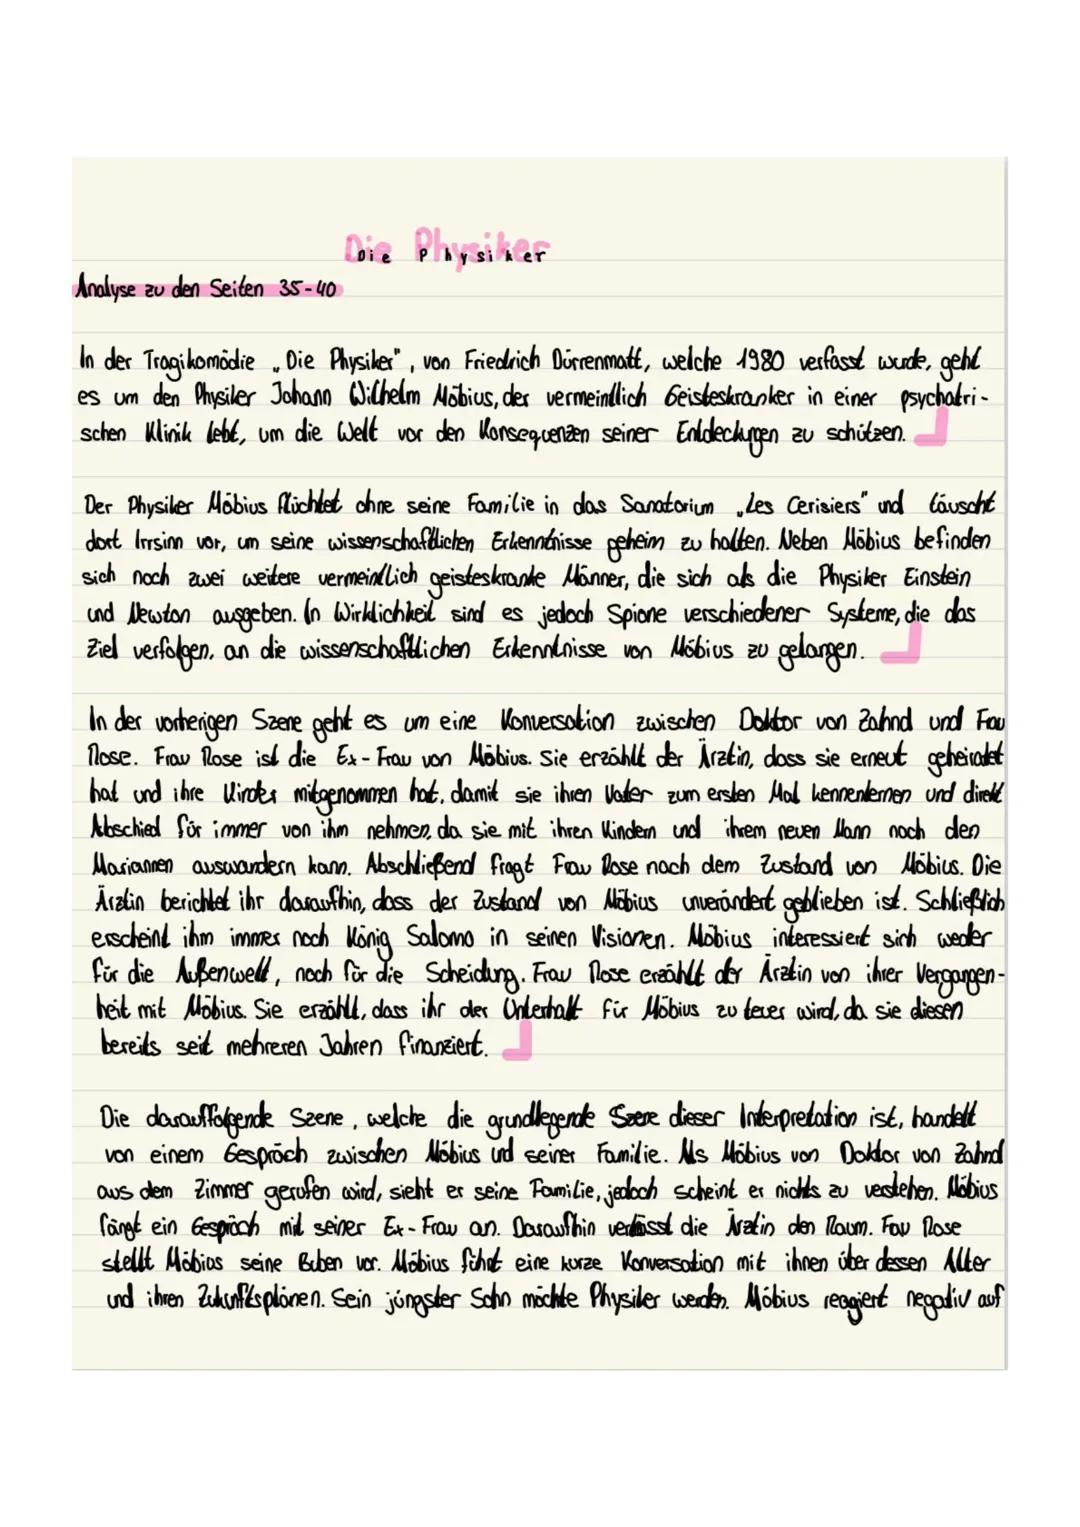 Die Physiker
Die Physiker
Analyse zu den Seiten 35-40
In der Tragikomödie „Die Physiker", von Friedrich Dürrenmatt, welche 1980 verfasst wurde, geht
es um den Physiker Johann Wilhelm Möbius, der vermeindlich Geisteskranker in einer psychatri-
schen Klinik lebt, um die Welt vor den Konsequenzen seiner Entdeckungen zu schützen.
Der Physiker Möbius flüchtet ohne seine Familie in das Sanatorium „Les Cerisiers" und täuscht
dort Irrsinn vor, um seine wissenschaftlichen Erkenntnisse geheim zu halten. Neben Möbius befinden
sich noch zwei weitere vermeindlich geisteskranke Männer, die sich als die Physiker Einstein
und Newton ausgeben. In Wirklichkeit sind es jedoch Spione verschiedener Systeme, die das
Ziel verfolgen, an die wissenschaftlichen Erkenntnisse von Möbius zu gelangen.
In der vorherigen Szene geht es um eine Konversation zwischen Doktor von Zahnd und Frau
Rose. Frau Rose ist die Ex-Frau von Möbius. Sie erzählt der Ärztin, dass sie erneut geheiratet
hat und ihre Kinder mitgenommen hat, damit sie ihren Vater zum ersten Mal kennenlernen und direkt
Abschied für immer von ihm nehmen, da sie mit ihren Kindern und ihrem neuen Mann nach den
Mariannen auswandern kann. Abschließend fragt Frau Rose nach dem Zustand von Möbius. Die
Ärztin berichtet ihr daraufhin, dass der Zustand von Möbius unverändert geblieben ist. Schließlich
erscheint ihm immer noch König Salomo in seinen Visionen. Möbius interessiert sich weder
für die Außenwelt, noch für die Scheidung. Frau Rose erzählt der Ärztin von ihrer Vergangen-
heit mit Möbius. Sie erzählt, dass ihr der Unterhalt für Möbius zu teuer wird, da sie diesen
bereits seit mehreren Jahren finanziert.
Die darauffolgende Szene, welche die grundlegende Szene dieser Interpretation ist, handelt
von einem Gespräch zwischen Möbius und seiner Familie. Als Möbius von Doktor von Zahnd
aus dem Zimmer gerufen wird, sieht er seine Familie, jedoch scheint er nichts zu verstehen. Möbius
fängt ein Gespräch mit seiner Ex-Frau an. Daraufhin verlässt die Ärztin den Raum. Fau Rose
stellt Möbius seine Buben vor. Möbius führt eine kurze Konversation mit ihnen über dessen Alter
und ihren Zukunftsplänen. Sein jüngster Sohn möchte Physiker werden. Möbius reagiert negativ auf